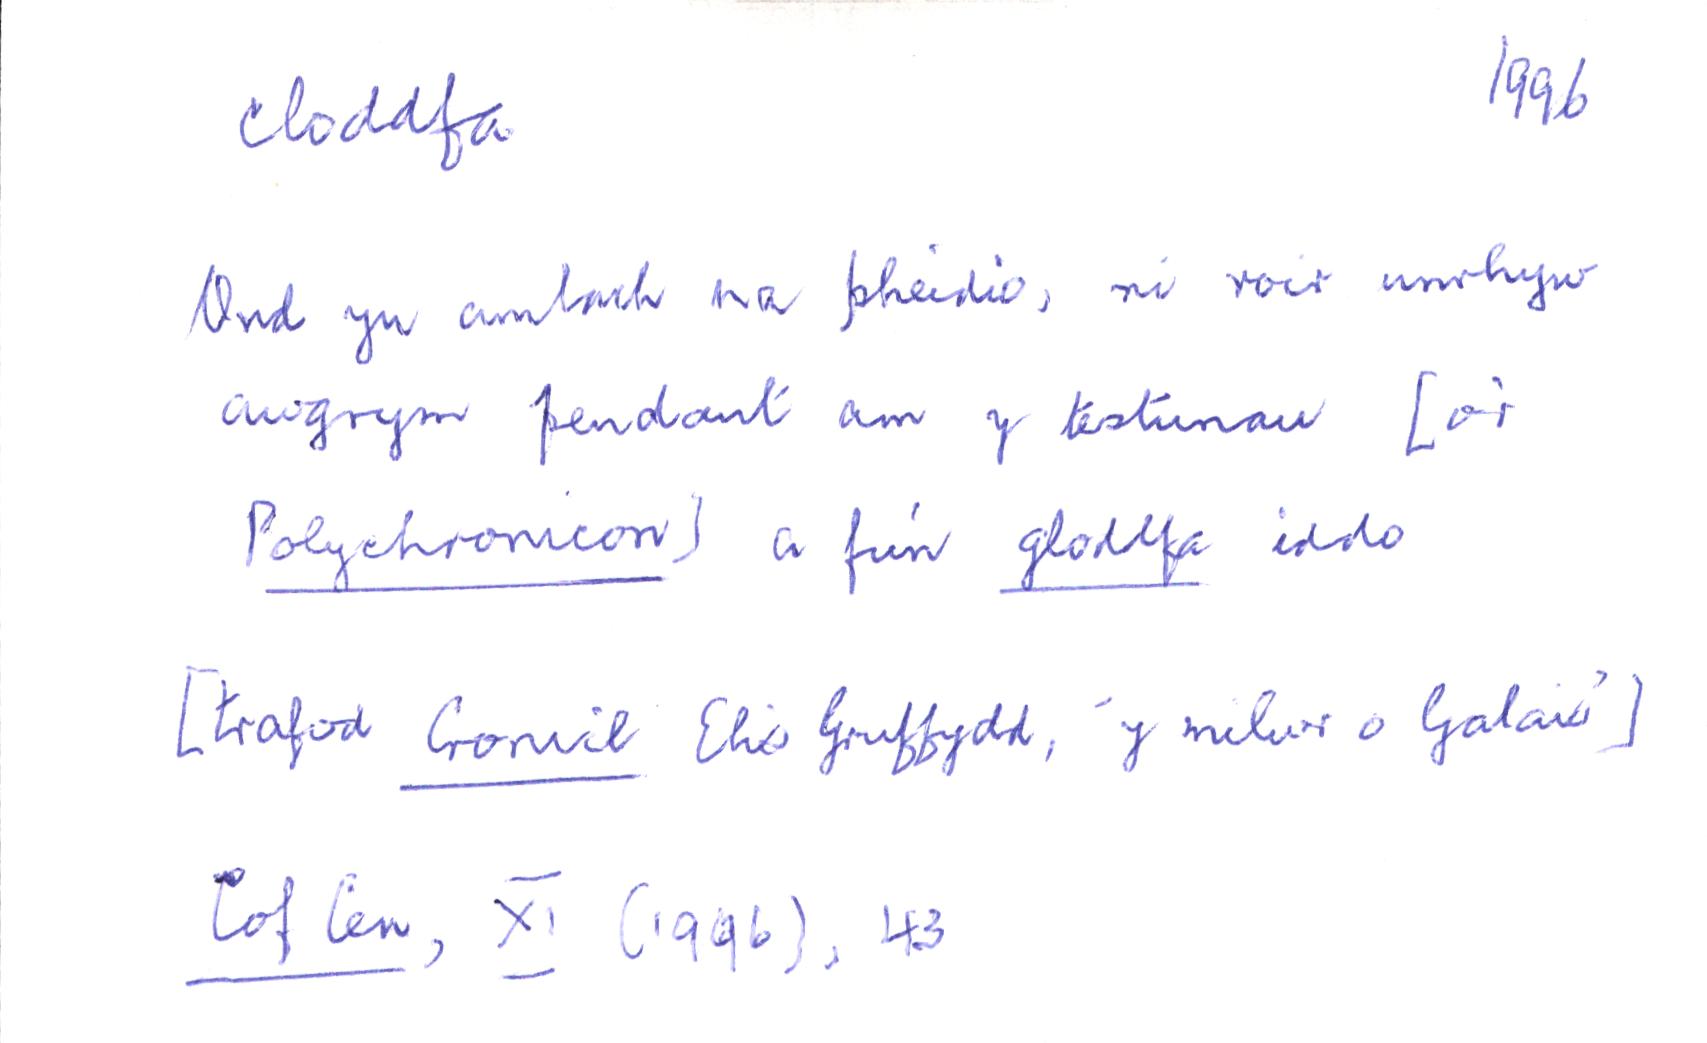 cloddfa 1996
Ond yn amlach na pheidio, ni roir unrhyw
awgrym pendant am y testunau [o'r
Polychronicon] a fu'n gloddfa iddo
[trafod Cronicl Elis Gruffydd, 'y milwr o Galais']
Cof Cen, XI (1996), 43